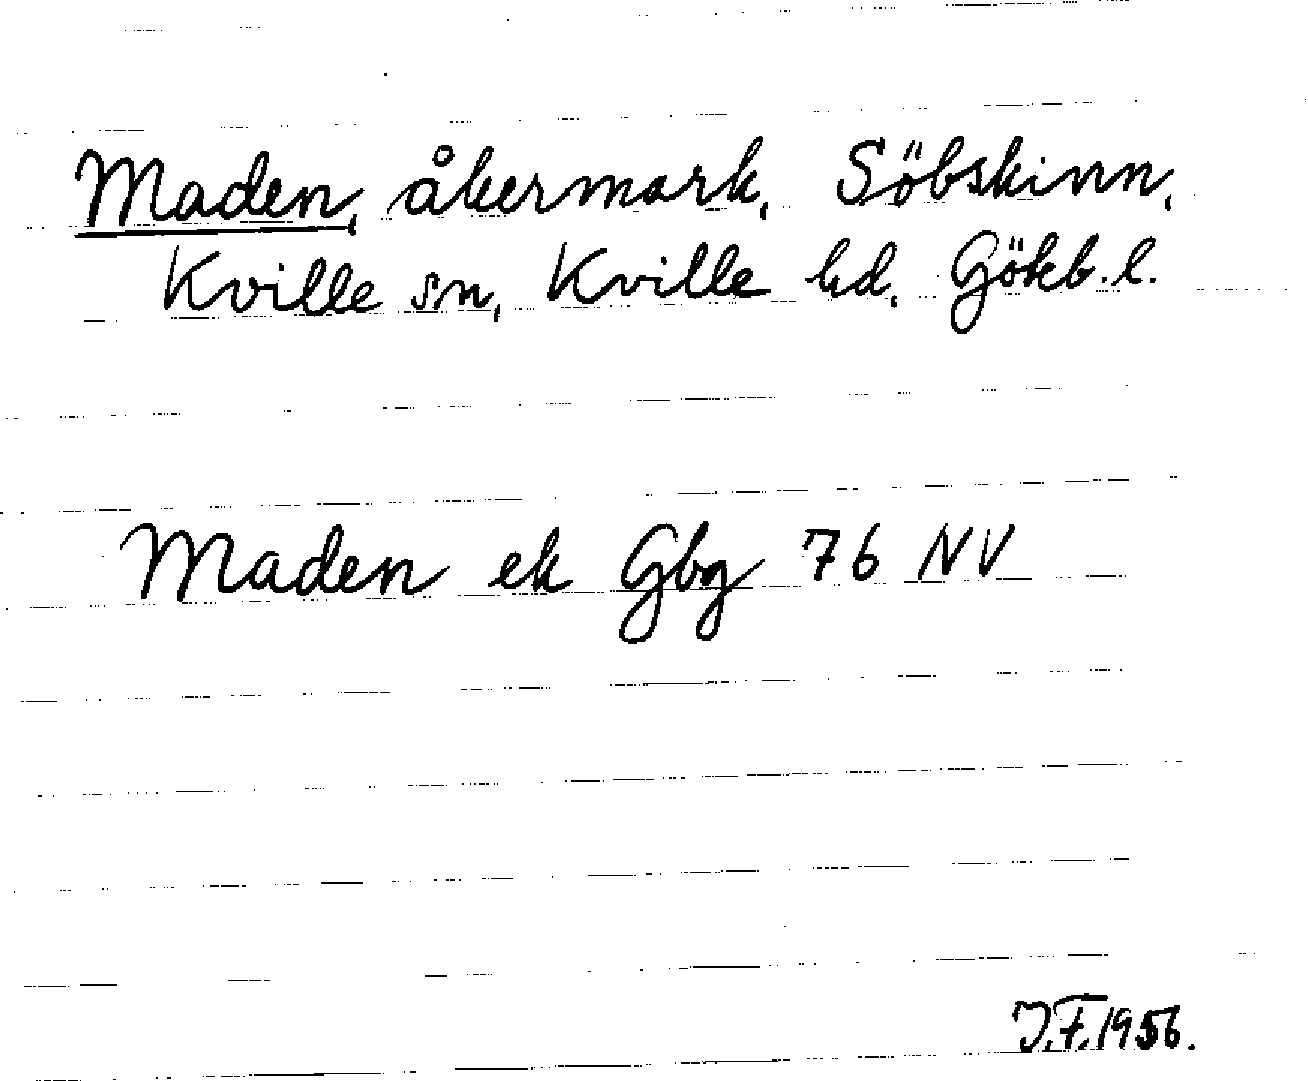 Maden, åkermark, Söbskinn,
Kville sn, Kville hd, Gökb. l.
Maden ek Gbg 76 NV
J.F. 1956.